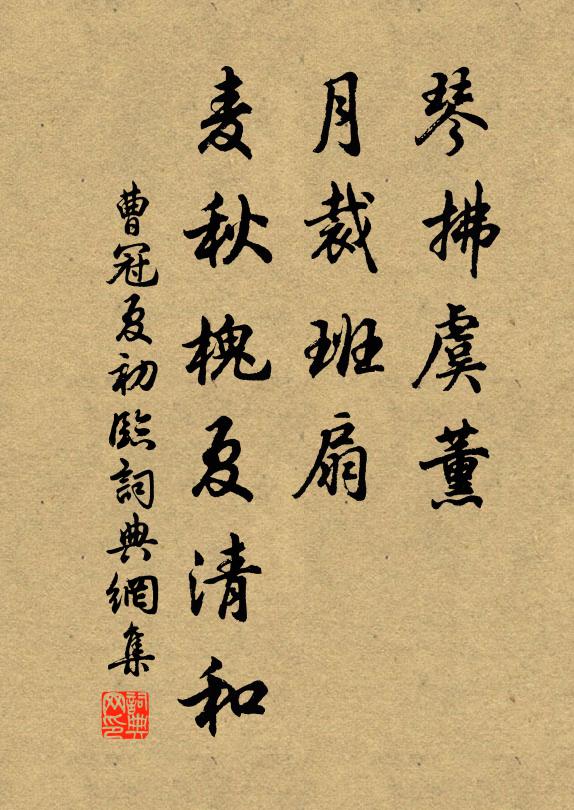 琴拂虞薰
月裁班扇
麦秋槐夏清和
曹冠夏初臨詞典網集
詞典
网印